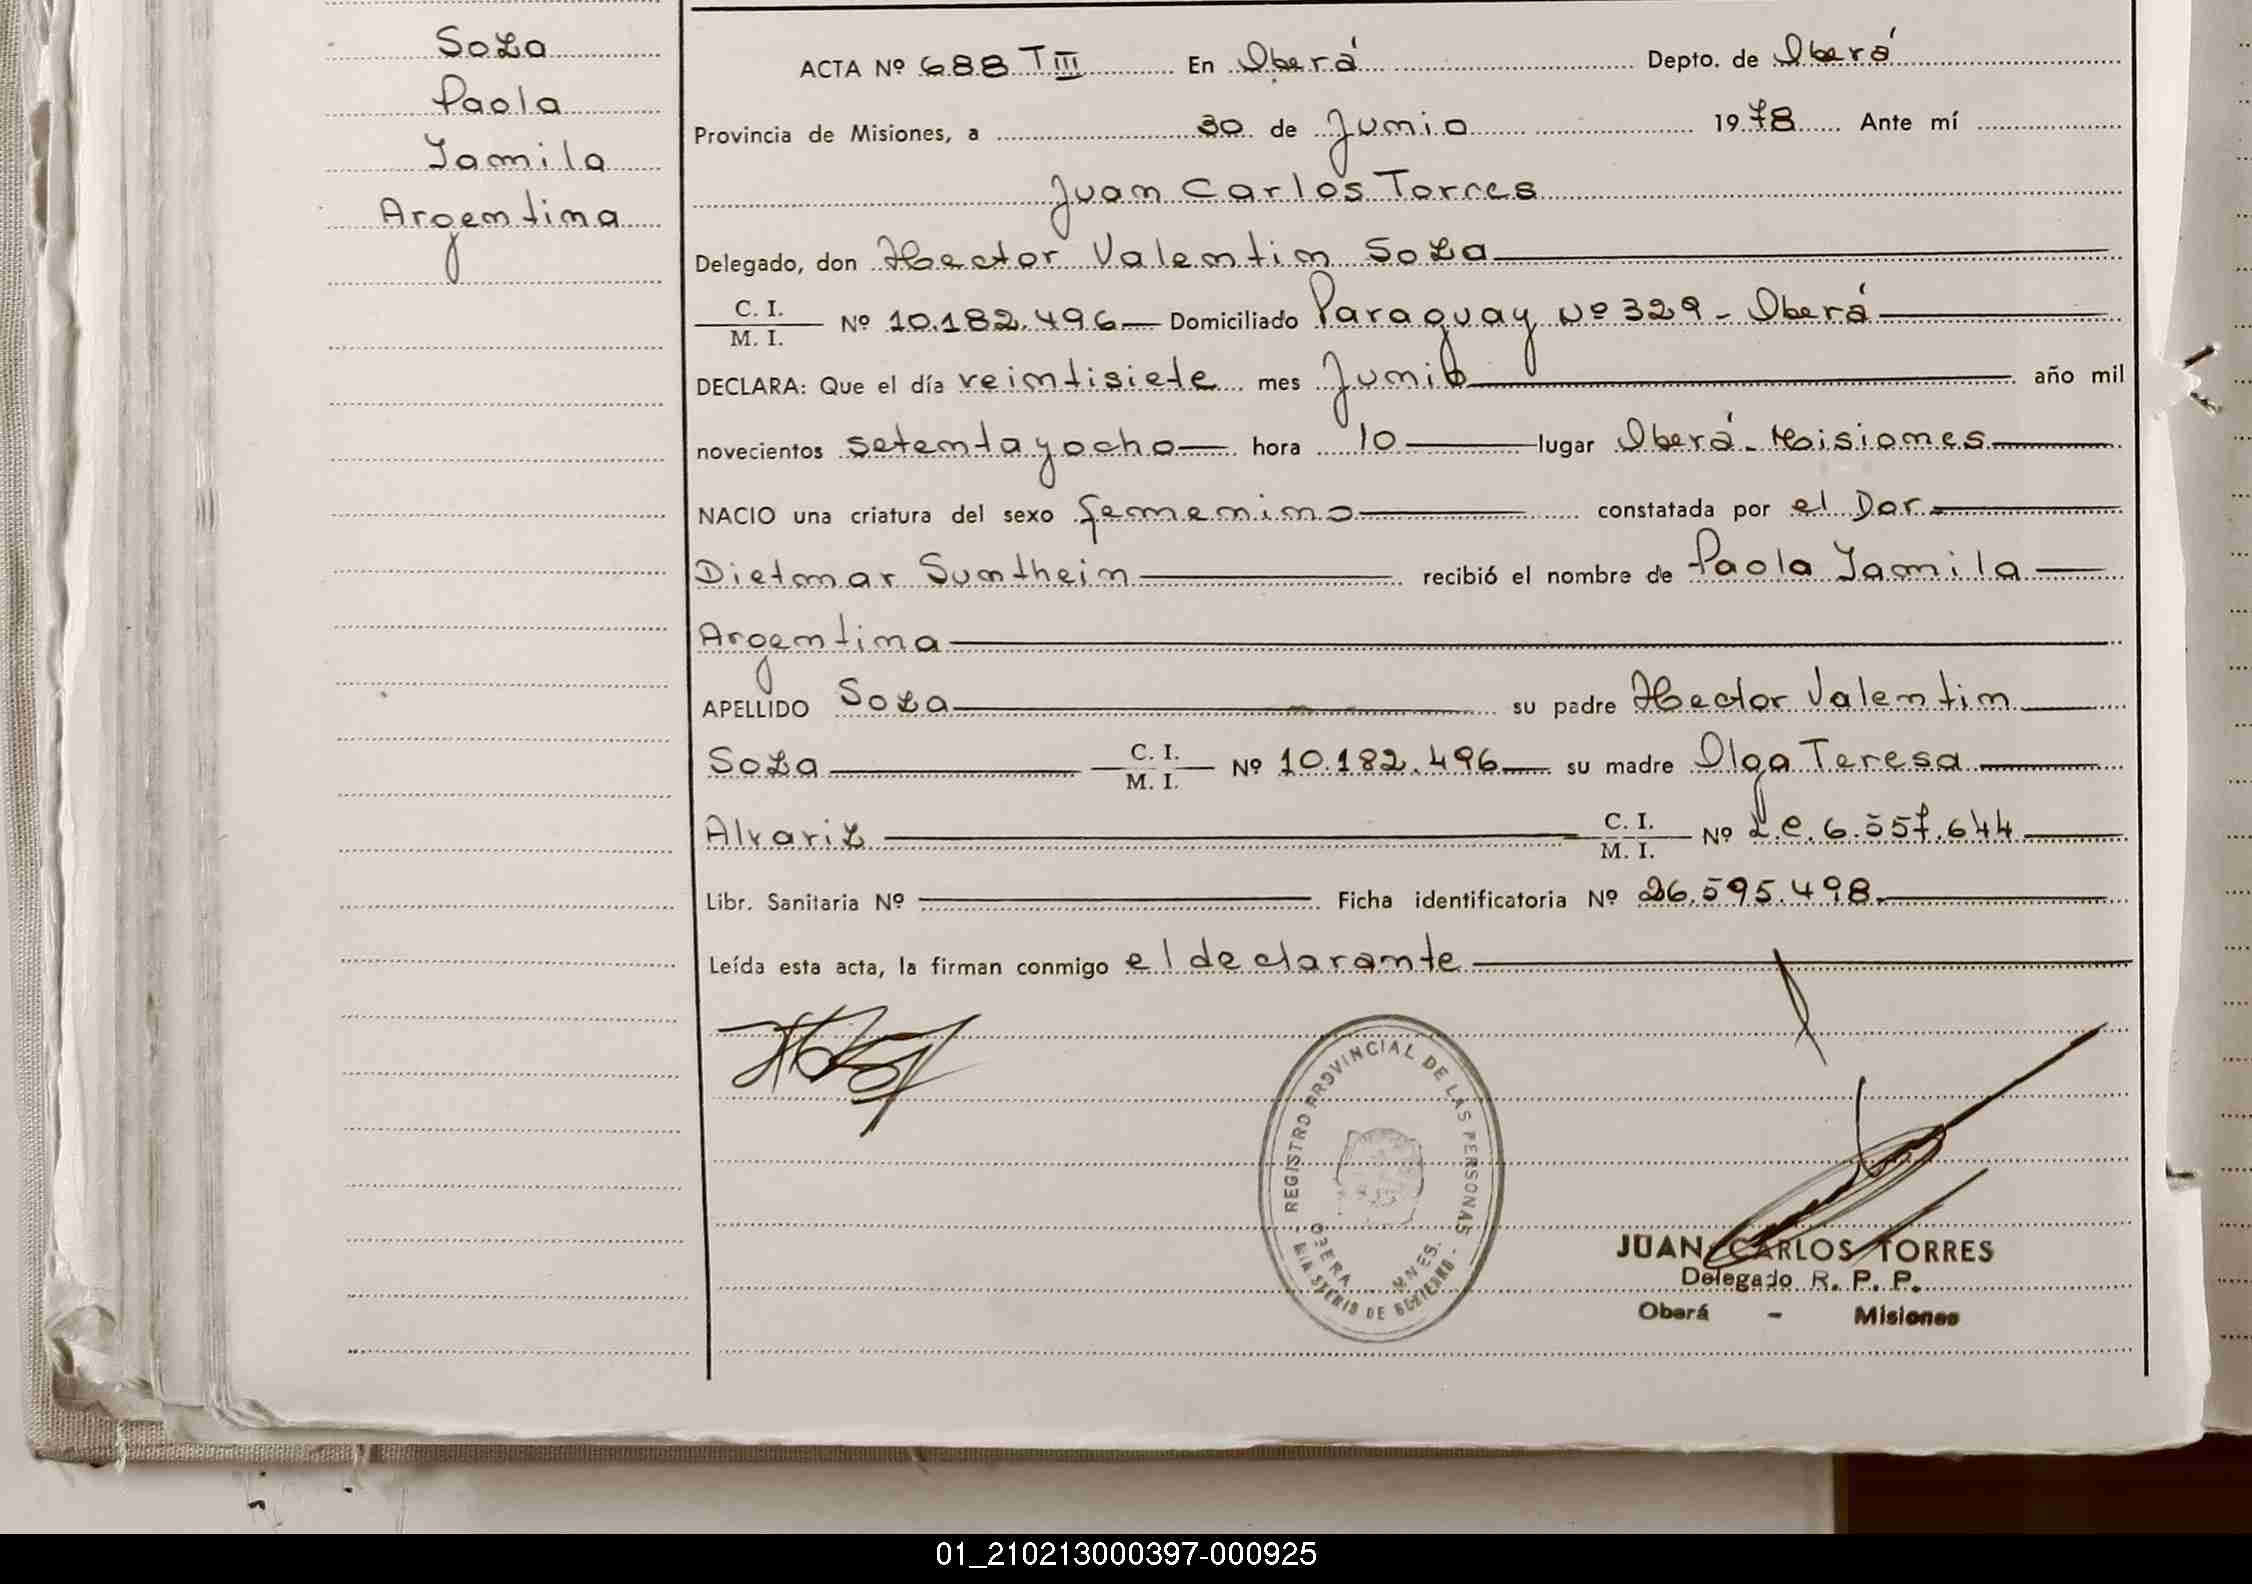 Soza
Paola
Yamila
Argentina
ACTA Nº 688 T III En Oberá Depto. de Oberá
Provincia de Misiones, a 30 de Junio 1978 Ante mí
Juan Carlos Torres
Delegado, don Hector Valentin Soza
C. I.
M. I. Nº 10.182.496 Domiciliado Paraguay Nº 329 - Oberá
DECLARA: Que el día veintisiete mes Junio año mil
novecientos setenta y ocho hora 10 lugar Oberá - Misiones
NACIO una criatura del sexo femenino constatada por el Dor
Dietmar Sunthein recibió el nombre de Paola Yamila
Argentina
APELLIDO Soza su padre Hector Valentin
Soza C. I. M. I. Nº 10.182.496 su madre Olga Teresa
Alvariz C. I. M. I. Nº L.C. 6.557.644
Libr. Sanitaria Nº Ficha identificatoria Nº 26.595.498
Leída esta acta, la firman conmigo el declarante
REGISTRO PROVINCIAL DE LAS PERSONAS
OBERA MNES.
MINISTERIO DE GOBIERNO
JUAN CARLOS TORRES
Delegado R. P. P.
Oberá - Misiones
01_210213000397-000925